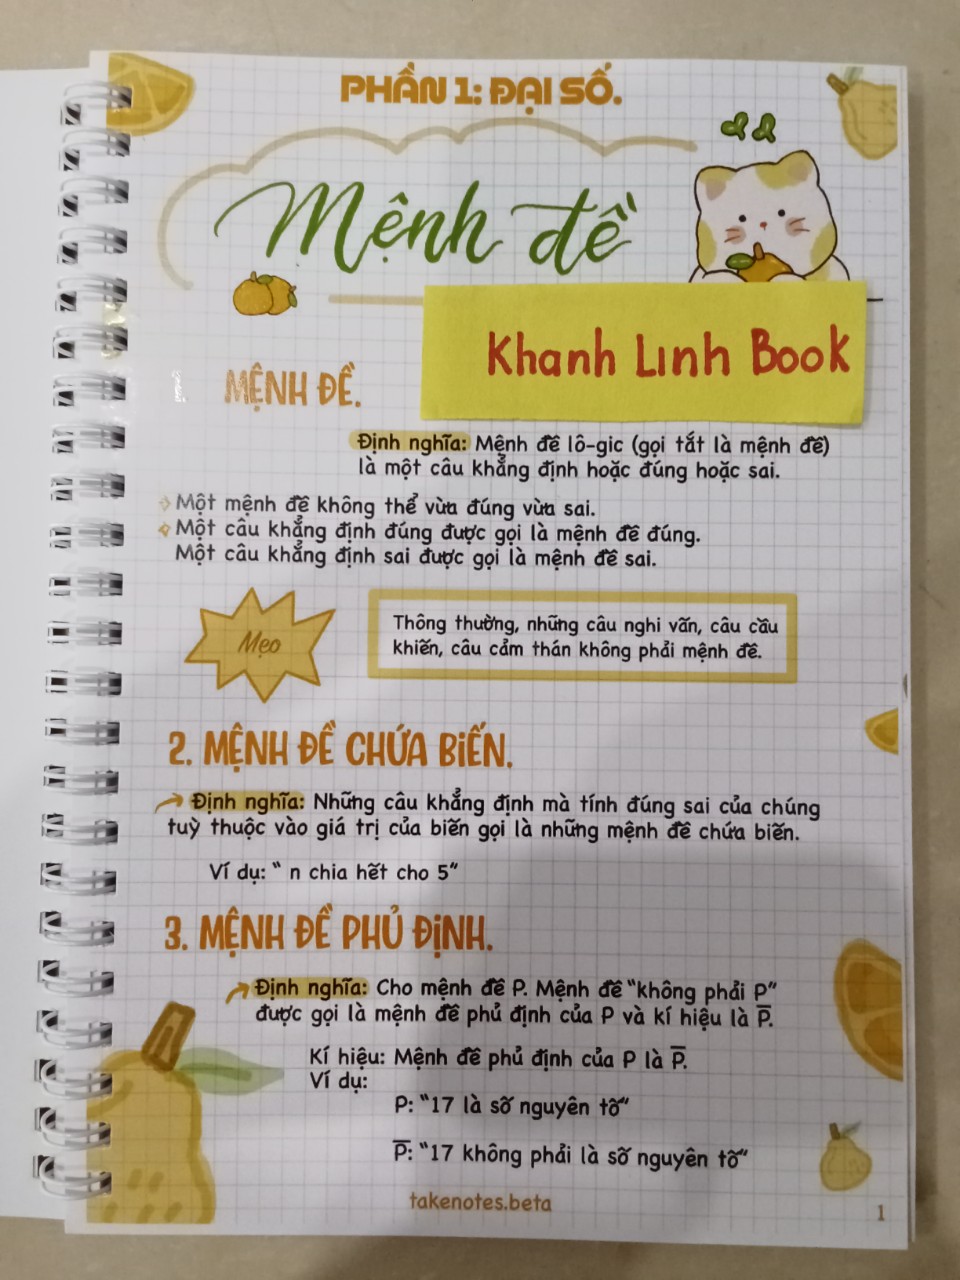 PHẦN 1: ĐẠI SỐ.
Mệnh đề
Khanh Linh Book
1. MỆNH ĐỀ.
Định nghĩa: Mệnh đề lô-gic (gọi tắt là mệnh đề)
là một câu khẳng định hoặc đúng hoặc sai.
Một mệnh đề không thể vừa đúng vừa sai.
Một câu khẳng định đúng được gọi là mệnh đề đúng.
Một câu khẳng định sai được gọi là mệnh đề sai.
Mẹo
Thông thường, những câu nghi vấn, câu cầu
khiến, câu cảm thán không phải mệnh đề.
2. MỆNH ĐỀ CHỨA BIẾN.
Định nghĩa: Những câu khẳng định mà tính đúng sai của chúng
tuỳ thuộc vào giá trị của biến gọi là những mệnh đề chứa biến.
Ví dụ: “ n chia hết cho 5”
3. MỆNH ĐỀ PHỦ ĐỊNH.
Định nghĩa: Cho mệnh đề P. Mệnh đề “không phải P”
được gọi là mệnh đề phủ định của P và kí hiệu là P̅.
Kí hiệu: Mệnh đề phủ định của P là P̅.
Ví dụ:
P: “17 là số nguyên tố”
P̅: “17 không phải là số nguyên tố”
takenotes.beta
1